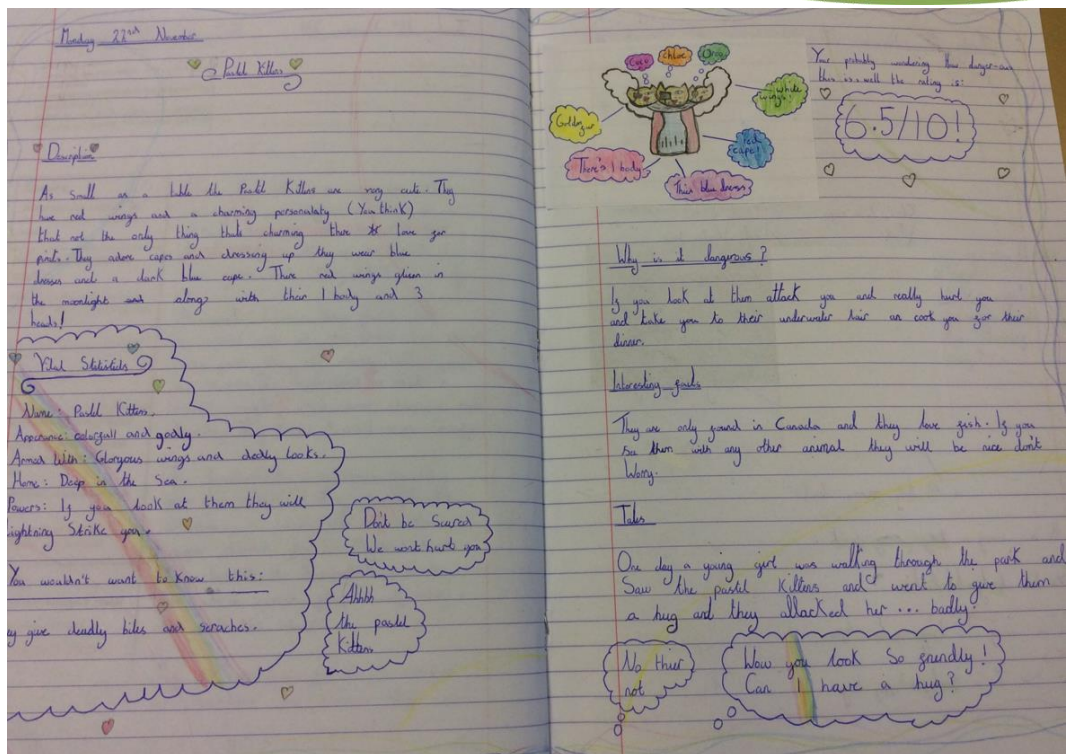 Monday 22nd November
Pastel Kittens
Description
As small as a table the Pastel Kittens are very cute. They
have red wings and a charming personalaty (You think)
that not the only thing thats charming there love for
prints. They adore capes and dressing up they wear blue
dresses and a dark blue cape. There red wings glisen in
the moonlight and along with their 1 body and 3
heads!
Vital Statistics
Name: Pastel Kittens.
Apperance: colorfull and godly.
Armed With: Gloryous wings and deadly looks.
Home: Deep in the Sea.
Powers: If you look at them they will
lightning Strike you.
You wouldn't want to know this:
give deadly bites and scraches.
Don't be Scared
We wont hurt you
Ahhhh
the pastel
Kittens
Coco
chloe
Oreo
white
wings!
Golden fur
red
cape!
There's 1 body
This blue dress
Your probably wondering how danger-ous
this is well the rating is:
6.5/10!
Why is it dangerous?
If you look at them attack you and really hurt you
and take you to their underwater lair an cook you for their
dinner.
Interesting facts
They are only found in Canada and they love fish. If you
see them with any other animal they will be nice don't
Worry.
Tales
One day a young girl was walking through the park and
Saw the pastel Kittens and went to give them
a hug and they attacked her ... badly.
No thier
not
Wow you look So friendly!
Can I have a hug?